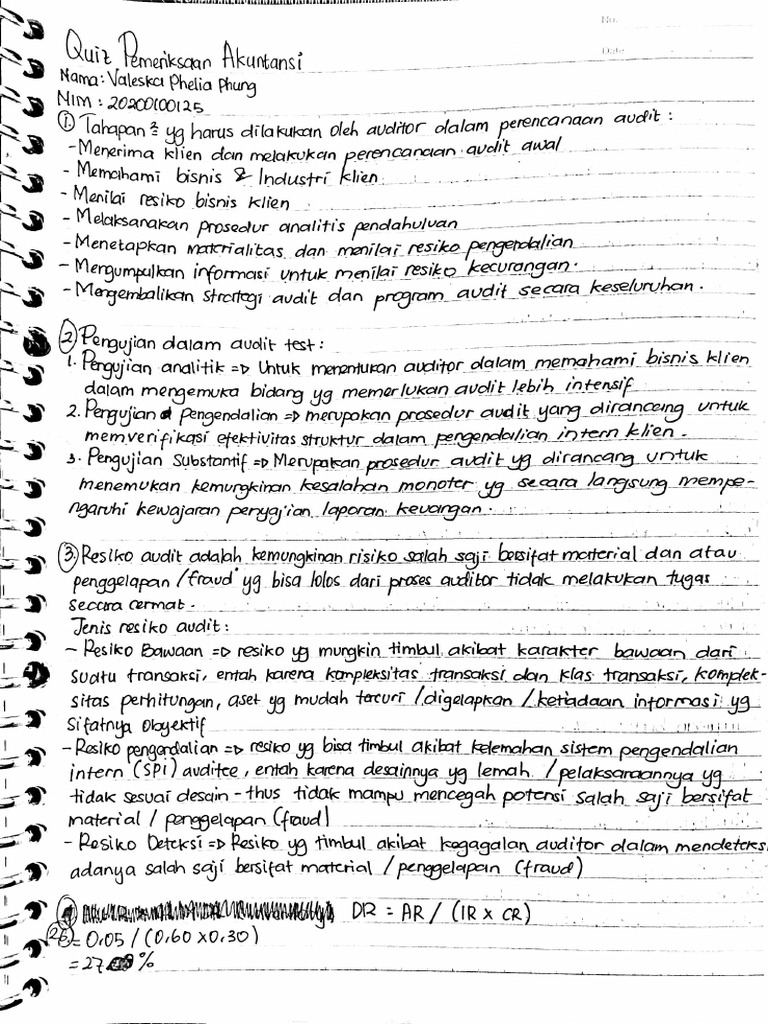 No.
Date
Quiz Pemeriksaan Akuntansi
Nama: Valeska Phelia Phung
NIM : 20200100125
① Tahapan² yg harus dilakukan oleh auditor dalam perencanaan audit :
- Menerima klien dan melakukan perencanaan audit awal
- Memahami bisnis & Industri klien
- Menilai resiko bisnis klien
- Melaksanakan prosedur analitis pendahuluan
- Menetapkan materialitas dan menilai resiko pengendalian
- Mengumpulkan informasi untuk menilai resiko kecurangan.
- Mengembalikan strategi audit dan program audit secara keseluruhan.
② Pengujian dalam audit test :
1. Pengujian analitik => Untuk menentukan auditor dalam memahami bisnis klien
dalam mengemuka bidang yg memerlukan audit lebih intensif
2. Pengujian pengendalian => merupakan prosedur audit yang dirancang untuk
memverifikasi efektivitas struktur dalam pengendalian intern klien.
3. Pengujian Substantif => Merupakan prosedur audit yg dirancang untuk
menemukan kemungkinan kesalahan monoter yg secara langsung mempe-
ngaruhi kewajaran penyajian laporan keuangan.
③ Resiko audit adalah kemungkinan risiko salah saji bersifat material dan atau
penggelapan /fraud yg bisa lolos dari proses auditor tidak melakukan tugas
secara cermat.
Jenis resiko audit :
- Resiko Bawaan => resiko yg mungkin timbul akibat karakter bawaan dari
suatu transaksi, entah karena kompleksitas transaksi dan klas transaksi, komplek-
sitas perhitungan, aset yg mudah tercuri / digelapkan / ketiadaan informasi yg
sifatnya obyektif
- Resiko pengendalian => resiko yg bisa timbul akibat kelemahan sistem pengendalian
intern (SPI) auditee, entah karena desainnya yg lemah / pelaksanaannya yg
tidak sesuai desain - thus tidak mampu mencegah potensi salah saji bersifat
material / penggelapan (fraud)
- Resiko Deteksi => Resiko yg timbul akibat kegagalan auditor dalam mendeteksi
adanya salah saji bersifat material / penggelapan (fraud)
④ DR = AR / (IR x CR)
= 0.05 / (0.60 x 0.30)
= 27 %